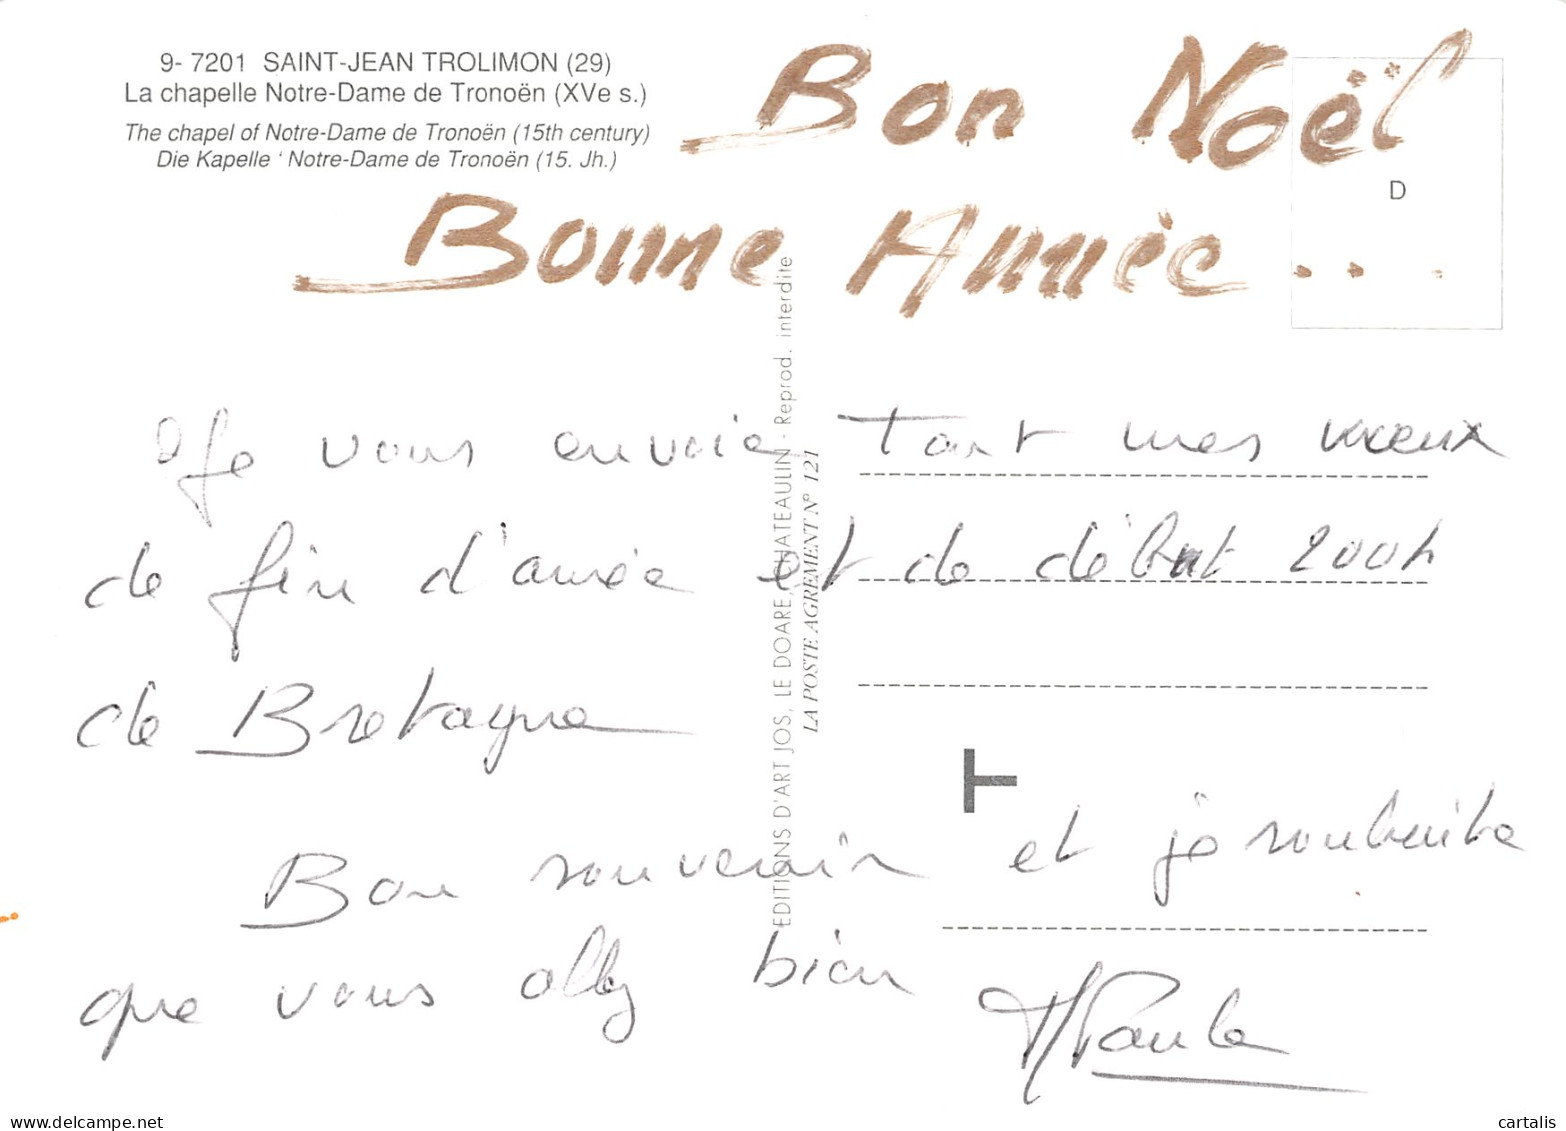 9- 7201 SAINT-JEAN TROLIMON (29)
La chapelle Notre-Dame de Tronoën (XVe s.)
The chapel of Notre-Dame de Tronoën (15th century)
Die Kapelle ' Notre-Dame de Tronoën (15. Jh.)
Bon Noël
Bonne Année...
D
Je vous envoie tout mes voeux
de fin d'année et de début 2004
de Bretagne
Bon souvenir et je souhaite
que vous allez bien
Paule
EDITIONS D'ART JOS, LE DOARE, CHATEAULIN - Reprod. interdite
LA POSTE AGREMENT N° 121
www.delcampe.net
cartalis